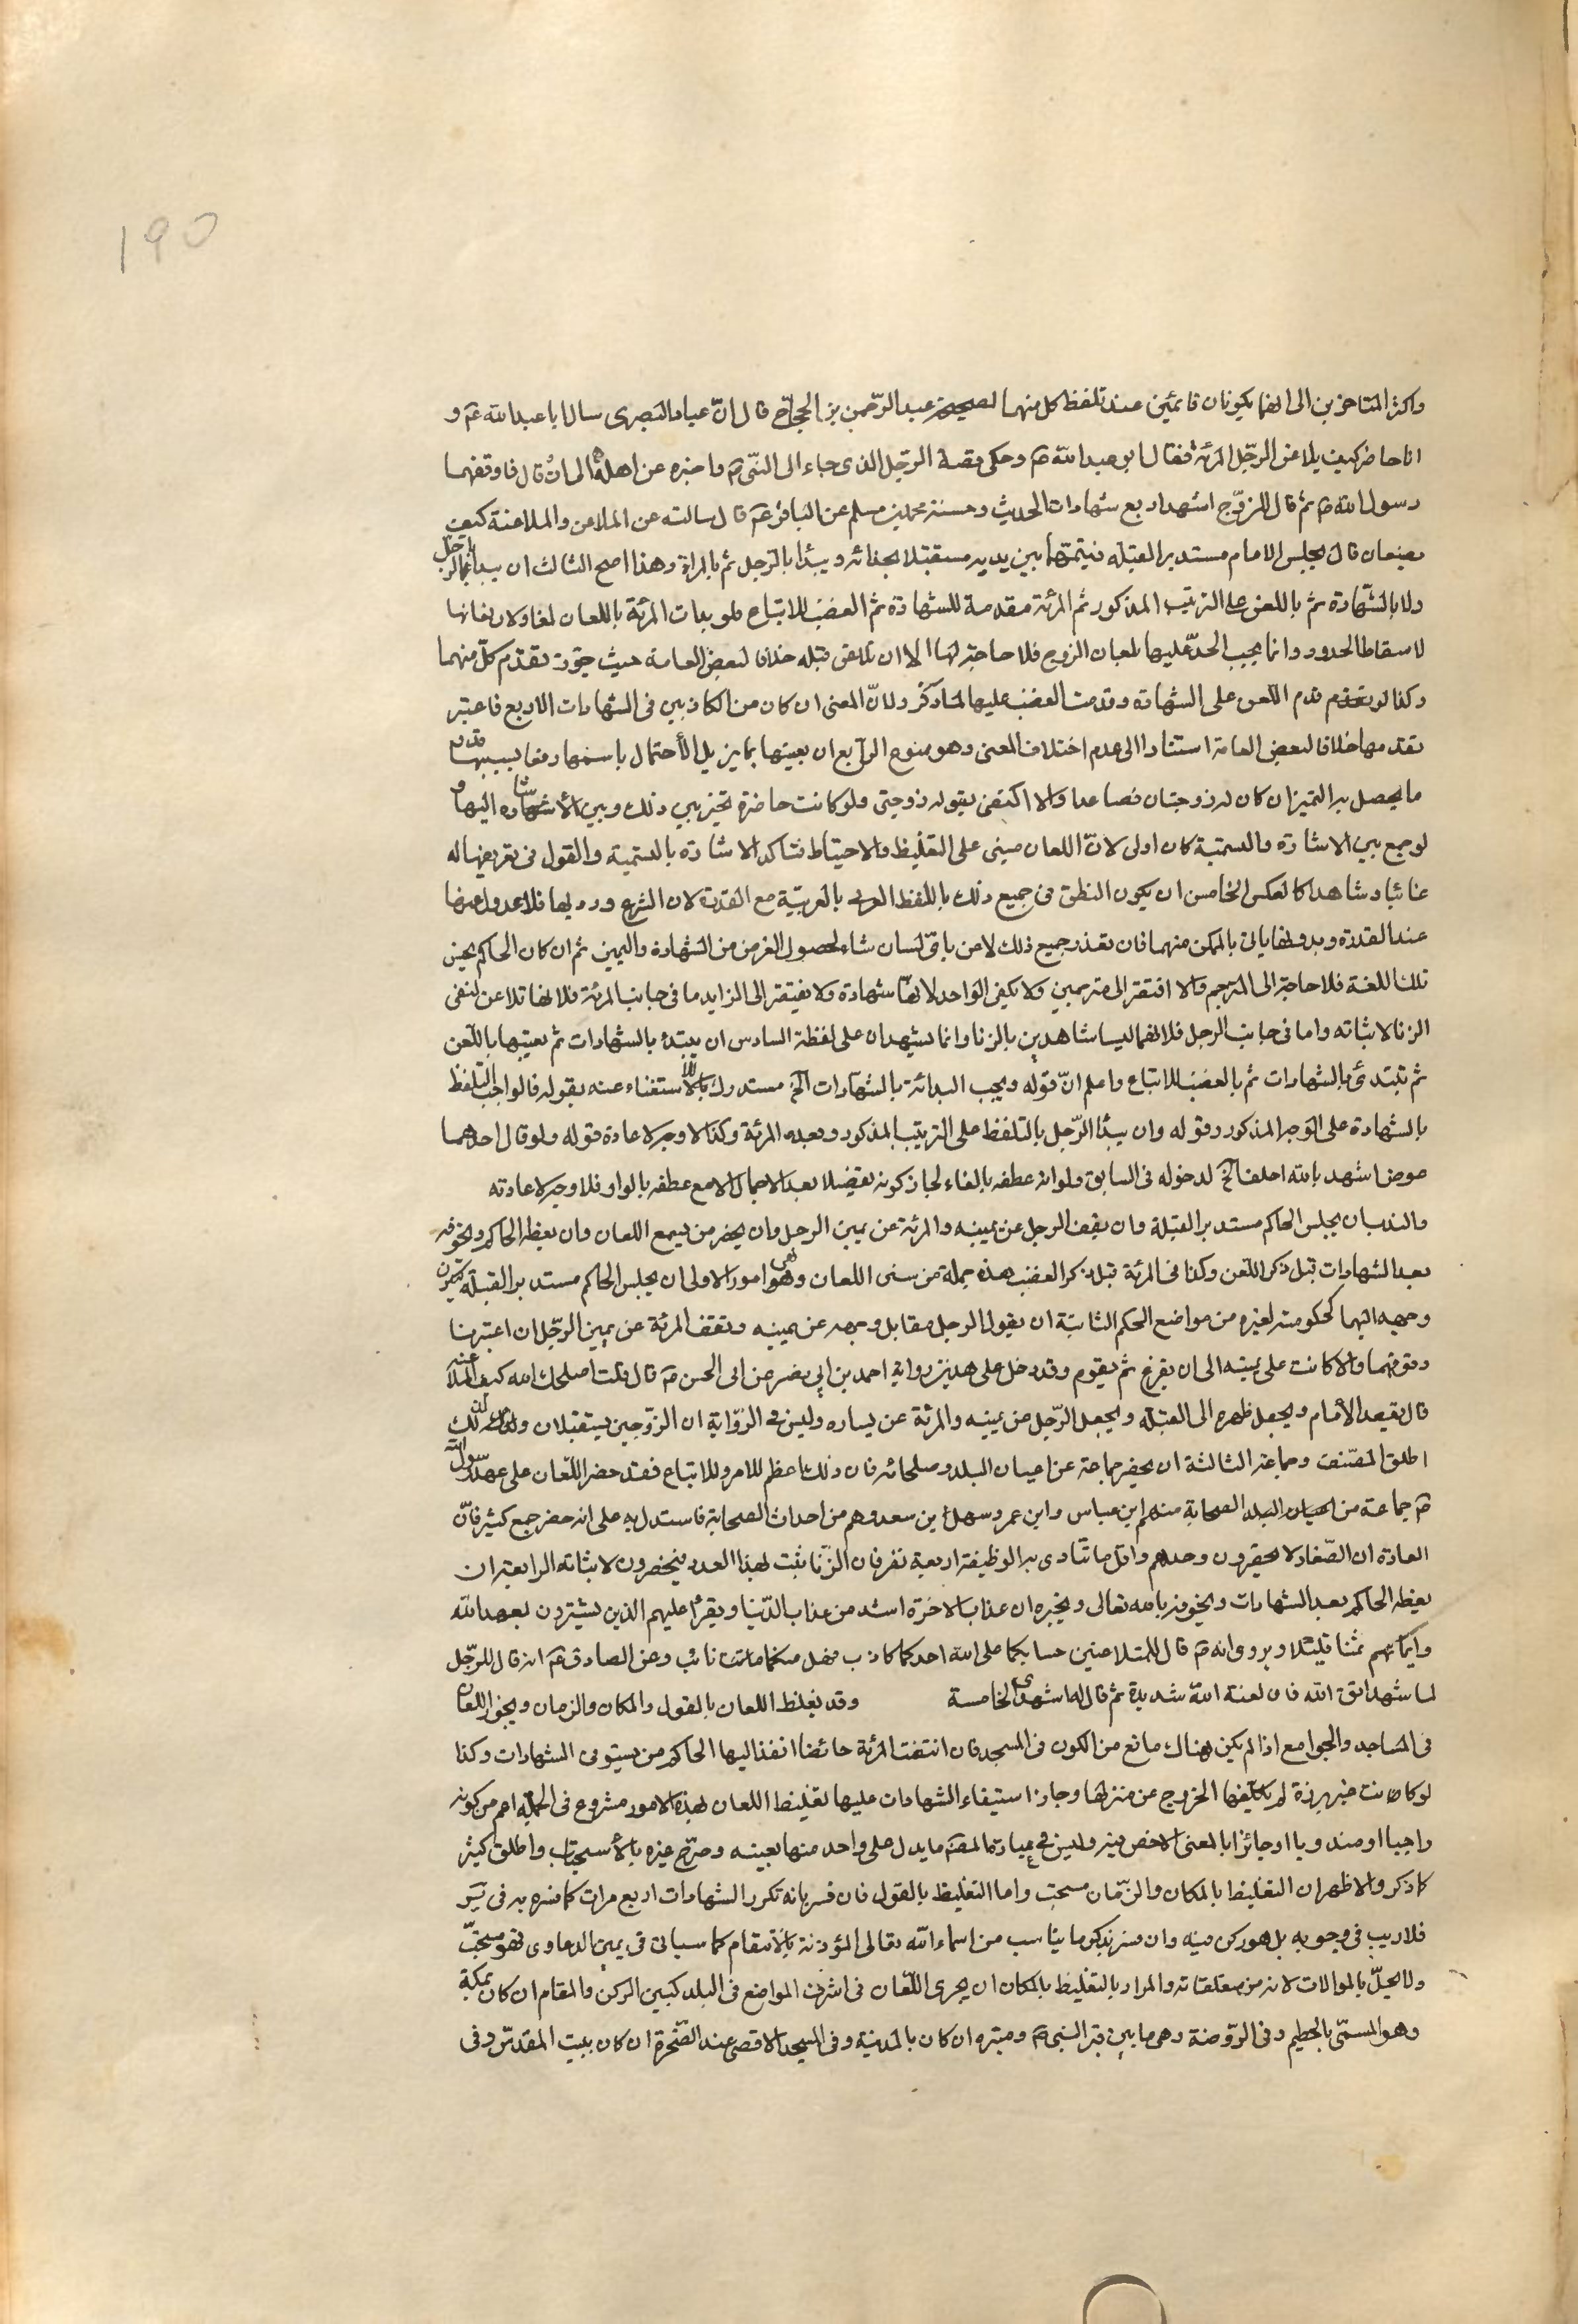 190
واكثر المتاخرين الى انهما يكونان قائمين عند تلفظ كل منهما لصحيحة عبد الرّحمن بن الحجّاج قال انّ عباد البصرى سال ابا عبد الله عم و
انا حاضر كيف يلاعن الرّجل المرئة فقال ابو عبد الله عم وحكى قصة الرّجل الذى جاء الى النّبى ص واخبره عن اهله الى ان قال فاوقفهما
رسول الله ص ثم قال للزوّج اشهد اربع شهادات الحديث وحسنة محمد بن مسلم عن الباقر عم قال سالته عن الملاعن والملاعنة كيف
يصنعان قال يجلس الامام مستدبر القبله فيقيمهما بين يديه مستقبلا بحذائه ويبدأ بالرّجل ثم بالمراة وهذا اصح الثالث ان يبدأ الرجل
ولا بالشّهادة ثم باللعن على الترتيب المذكور ثم المرئة مقدمة للشهادة ثم الغضب للاتباع فلو بدات المرئة باللعان لغا ولان لعانها
لاسقاط الحدود وانما يجب الحدّ عليها بلعان الزوج فلا حاجة لها الا ان تلاعن قبله خلافا لبعض العامة حيث جوّز تقدّم كلّ منهما
وكذا لو قدم اللعن على الشهادة وقدمت الغضب عليها لما ذكر ولانّ المعنى ان كان من الكاذبين فى الشهادات الاربع فاعتبر
تقدمها خلافا لبعض العامة استنادا الى عدم اختلاف المعنى وهو ممنوع الرّابع ان يعينها بما يزيل الأحتمال باسمها ونسبها
ما يحصل به التميز ان كان له زوجتان فصاعدا والا اكتفى بقوله زوجتى ولو كانت حاضرة تخير بين ذلك وبين الأشارة اليها و
لو جمع بين الاشارة والتسمية كان اولى لانّ اللعان مبنى على التغليظ والاحتياط فتاكد الاشارة بالتسمية والقول فى تعريضها له
غائبا وشاهدا كالعكس الخامس ان يكون النطق فى جميع ذلك باللفظ العربى بالعربيّة مع القدرة لان الشرع ورد بها فلا عدول عنها
عند القدرة وبدونها ياتى بالممكن منهما فان تعذر جميع ذلك لاعن باىّ لسان شاء لحصول الغرض من الشهادة واليمين ثم ان كان الحاكم يحسن
تلك اللغة فلا حاجة الى المترجم والا افتقر الى مترجمين ولا يكفى الواحد لانها شهادة ولا يفتقر الى الزايد اما فى جانب المرئة فلانها تلاعن لنفى
الزنا لا ثباته واما فى جانب الرجل فلانهما ليسا شاهدين بالزنا وانما يشهدان على لفظة السادس ان يبتدئ بالشهادات ثم يعقبها باللّعن
ثم تبتدئ بالشهادات ثم بالغضب للاتباع واعلم انّ قوله ويجب البدائة بالشهادات الخ مستدرك للاستغناء عنه بقوله فالواجب التلفظ
بالشهادة على الوجه المذكور وقوله وان يبدأ الرّجل بالتلفظ على الترتيب المذكور وبعده المرئة وكذا لا وجه لاعادة قوله ولو قال احدهما
عوض اشهد بالله احلف الخ لدخوله فى السابق ولو انه عطفه بالفاء لجاز كونه تفصيلا بعد الاجمال لا مع عطفه بالواو فلا وجه لاعادته
والندب ان يجلس الحاكم مستدبر القبلة وان يقف الرجل عن يمينه والمرئة عن يمين الرجل وان يحضر من يسمع اللعان وان يعظه الحاكم ويخوفه
بعد الشهادات قبل ذكر اللّعن وكذا فى المرئة قبل ذكر الغضب هذه جملة من سنن اللعان وهى امور الاولى ان يجلس الحاكم مستدبر القبلة ليكون
وجهه اليهما كحكومته لغيره من مواضع الحكم الثانية ان يقول الرجل مقابل وجهه عن يمينه وتقف المرئة عن يمين الرّجل ان اعتبرنا
وقوفهما والا كانت على يمينه الى ان يفرغ ثم يقوم وقد دخل على هذين رواية احمد بن ابى نصر عن ابى الحسن عم قال قلت اصلحك الله كيف الملاعنه
قال يقعد الأمام ويجعل ظهره الى القبلة ويجعل الرّجل عن يمينه والمرئة عن يساره وليس فى الرّوّاية ان الزّوجين يستقبلان ولذلك
اطلق المصّنف وجماعة الثالثة ان يحضر جماعة عن اعيان البلد وصلحائه فان ذلك اعظم للامر وللاتباع فقد حضر اللّعان على عهد رسول الله
ص جماعة من اعيان البلد الصحابة منهم ابن عباس وابن عمر وسهل ابن سعد وهم من احداث الصحابة فاستدل به على انه حضر جمع كثير فانّ
العادة ان الصّغار لا يحضرون وحدهم واقل ما تتادى به الوظيفة اربعة نفر فان الزّنا يثبت بهذا العدد فيحضرون لاثباته الرابعة ان
يعظه الحاكم بعد الشهادات ويخوفه بالله تعالى ويخبره ان عذاب الاخرة اشد من عذاب الدّنيا ويقرأ عليهم الذين يشترون بعهد الله
وايمانهم ثمنا قليلا ويروى انه ص قال للمتلاعنين حسابكما على الله احدكما كاذب فهل منكما من تائب وعن الصادق عم انه قال للرّجل
لما شهد اتق الله فان لعنة الله شديدة ثم قال له اشهد الخامسة وقد يغلظ اللعان بالقول والمكان والزمان ويجوز اللعان
فى المساجد والجوامع اذا لم يكن هناك مانع من الكون فى المسجد فان اتفقت المرئة حائضا انفذ اليها الحاكم من يستوفى الشهادات وكذا
لو كانت غير برزة لم يكلفها الخروج عن منزلها وجاز استيفاء الشهادات عليها تغليظ اللعان بهذه الامور مشروع فى الجملة اعم من كونه
واجبا او مندوبا او جائزا بالمعنى الاخص فيه وليس فى عبارة المصّ ما يدل على واحد منها بعينه وصرّح غيره بالأستحباب واطلق كثير
كما ذكر والاظهر ان التغليظ بالمكان والزّمان مستحب واما التغليظ بالقول فان فسر بانه تكرر الشهادات اربع مرات كما فسره به فى
فلا ريب فى وجوبه بل هو ركن فيه وان فسر بذكر ما يناسب من اسماء الله تعالى المؤذنة بالأنتقام كما سياتى فى يمين الدعاوى فهو مستحبّ
ولا يخلّ بالموالات لانه من متعلقاته والمراد بالتغليظ بالمكان ان يجرى اللّعان فى اشرف المواضع فى البلد كبين الركن والمقام ان كان بمكة
وهو المسمّى بالحطيم وفى الرّوضة وهى ما بين قبر النبى ص ومنبره ان كان بالمدينة وفى المسجد الاقصى عند الصّخرة ان كان ببيت المقدّس وفى